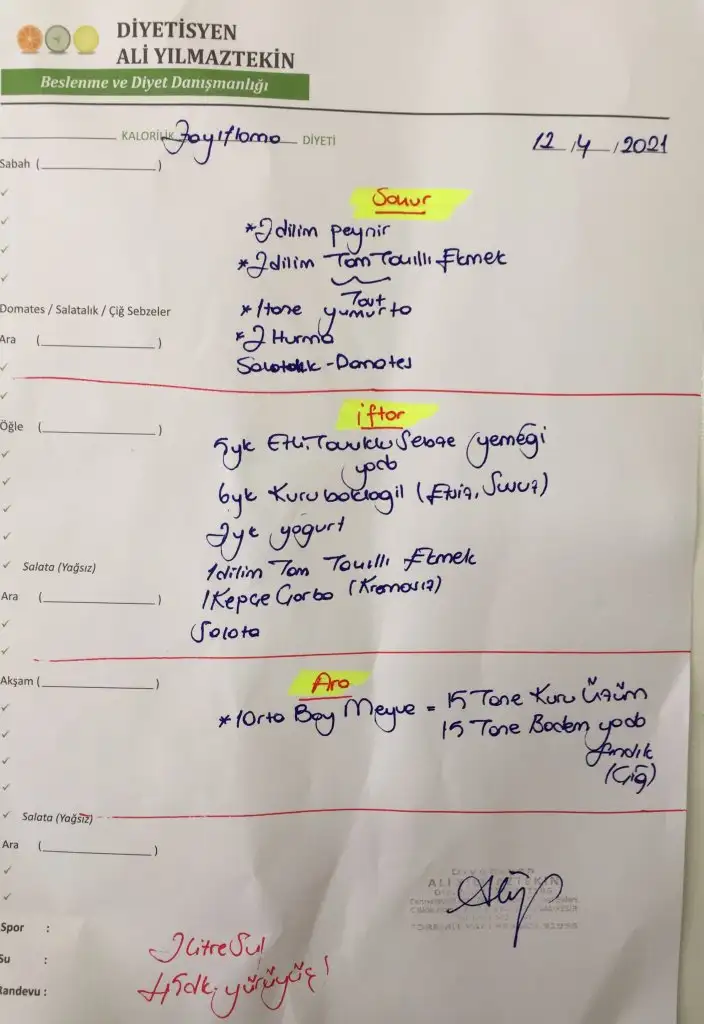 DİYETİSYEN
ALİ YILMAZTEKİN
Beslenme ve Diyet Danışmanlığı
KALORİLİK Zayıflama DİYETİ
12/4/2021
Sabah (              )
Sahur
*2 dilim peynir
*2 dilim Tam Tavıllı Ekmek
Domates / Salatalık / Çiğ Sebzeler
*1 tane yumurta
Ara (              )
*2 Hurma
Salatalık-Domates
iftar
Öğle (              )
5yk Etli, Tavuklu Sebze yemeği
yada
6yk Kurubaklagil (Etsiz, Susuz)
2yk yoğurt
Salata (Yağsız)
1dilim Tam Tavıllı Ekmek
Ara (              )
1Kepçe Çorba (Kremasız)
Salata
Akşam (              )
Ara
*1Orta Boy Meyve = 15 Tane Kuru Üzüm
15 Tane Badem yada
fındık
(Çiğ)
Salata (Yağsız)
Ara (              )
ALİ YILMAZTEKİN
Spor :
2 litre Su!
Su :
45dk. yürüyüş!
Randevu :